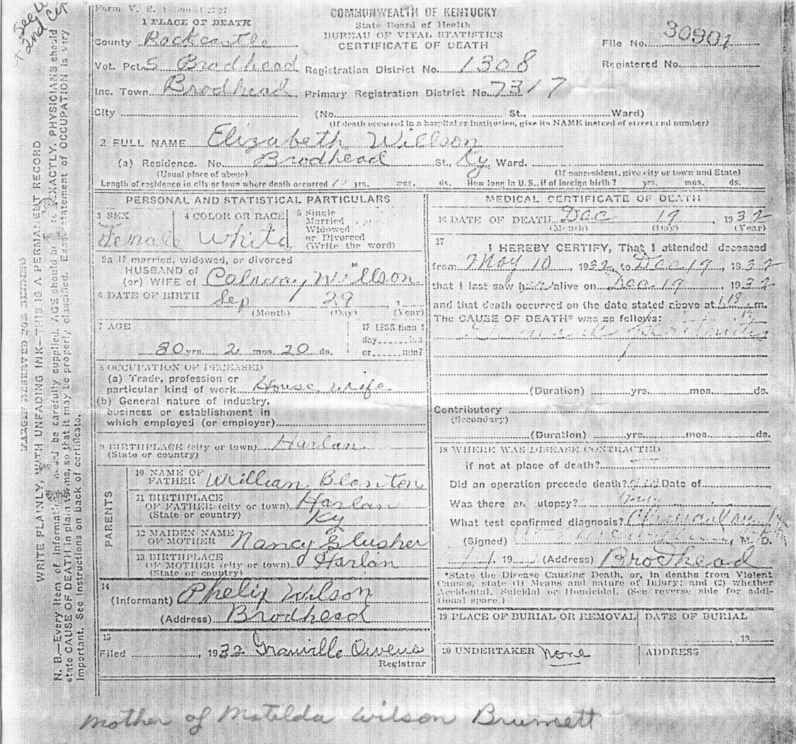 See
2nd Cer
Form V. S.
COMMONWEALTH OF KENTUCKY
State Board of Health
BUREAU OF VITAL STATISTICS
CERTIFICATE OF DEATH
1 PLACE OF DEATH
County Rockcastle
File No. 30901
Vot. Pct. S Brodhead Registration District No. 1308 Registered No.
Inc. Town Brodhead Primary Registration District No. 7317
City (No. St., Ward)
(If death occurred in a hospital or institution, give its NAME instead of street and number)
2 FULL NAME Elizabeth Willson
(a) Residence. No. Brodhead St., Ky. Ward.
(Usual place of abode) (If nonresident, give city or town and State)
Length of residence in city or town where death occurred yrs. mos. ds. How long in U.S., if of foreign birth? yrs. mos. ds.
PERSONAL AND STATISTICAL PARTICULARS
3 SEX 4 COLOR OR RACE 5 Single
Married
Widowed
or Divorced
(Write the word)
Female White
5a If married, widowed, or divorced
HUSBAND of
(or) WIFE of Calaway Willson
6 DATE OF BIRTH Sep 29
(Month) (Day) (Year)
7 AGE If LESS than 1
day
80 yrs. 2 mos. 20 ds. or min?
8 OCCUPATION OF DECEASED
(a) Trade, profession or
particular kind of work House wife
(b) General nature of industry,
business or establishment in
which employed (or employer)
9 BIRTHPLACE (city or town) Harlan
(State or country)
PARENTS
10 NAME OF
FATHER Willian Blanton
11 BIRTHPLACE
OF FATHER (city or town) Harlan
(State or country) Ky
12 MAIDEN NAME
OF MOTHER Nancy Slusher
13 BIRTHPLACE
OF MOTHER (city or town) Harlan
(State or country)
14
(Informant) Phelix Wilson
(Address) Brodhead
15
Filed , 1932 Granville Owens
Registrar
MEDICAL CERTIFICATE OF DEATH
16 DATE OF DEATH Dec 19 , 1932
(Month) (Day) (Year)
17 I HEREBY CERTIFY, That I attended deceased
from May 10, 1932 to Dec 19, 1932
that I last saw her alive on Dec 19, 1932
and that death occurred on the date stated above at m.
The CAUSE OF DEATH* was as follows:
(Duration) yrs. mos. ds.
Contributory
(Secondary)
(Duration) yrs. mos. ds.
18 WHERE WAS DISEASE CONTRACTED
if not at place of death?
Did an operation precede death? Date of
Was there an autopsy?
What test confirmed diagnosis?
(Signed) , M. D.
, 19 (Address) Brodhead
*State the Disease Causing Death, or, in deaths from Violent
Causes, state (1) Means and nature of Injury; and (2) whether
Accidental, Suicidal or Homicidal. (See reverse side for addi-
tional space.)
19 PLACE OF BURIAL OR REMOVAL DATE OF BURIAL
, 19
20 UNDERTAKER None ADDRESS
MARGIN RESERVED FOR BINDING
WRITE PLAINLY, WITH UNFADING INK—THIS IS A PERMANENT RECORD
N. B.—Every item of information should be carefully supplied. AGE should be stated EXACTLY. PHYSICIANS should
state CAUSE OF DEATH in plain terms so that it may be properly classified. Exact statement of OCCUPATION is very
important. See instructions on back of certificate.
Mother of Matilda Wilson Brumett